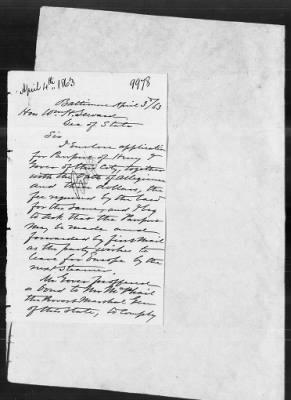 April 4th 1863
9978
Baltimore April 3rd/63
Hon Wm H. Seward
Sec of State
Sir
I Enclose application
for Passport of Henry T
Gover of this City, together
with the Oath of Allegiance
and three dollars, the
fee required by the Law
for the same, and beg
to ask that the Passport
may be made and
forwarded by first Mail
as the party wishes to
leave for Europe by the
next Steamer.
Mr Gover proffered
a Bond to Mr McPhail
the Provost Marshal Gen
of this State, to comply